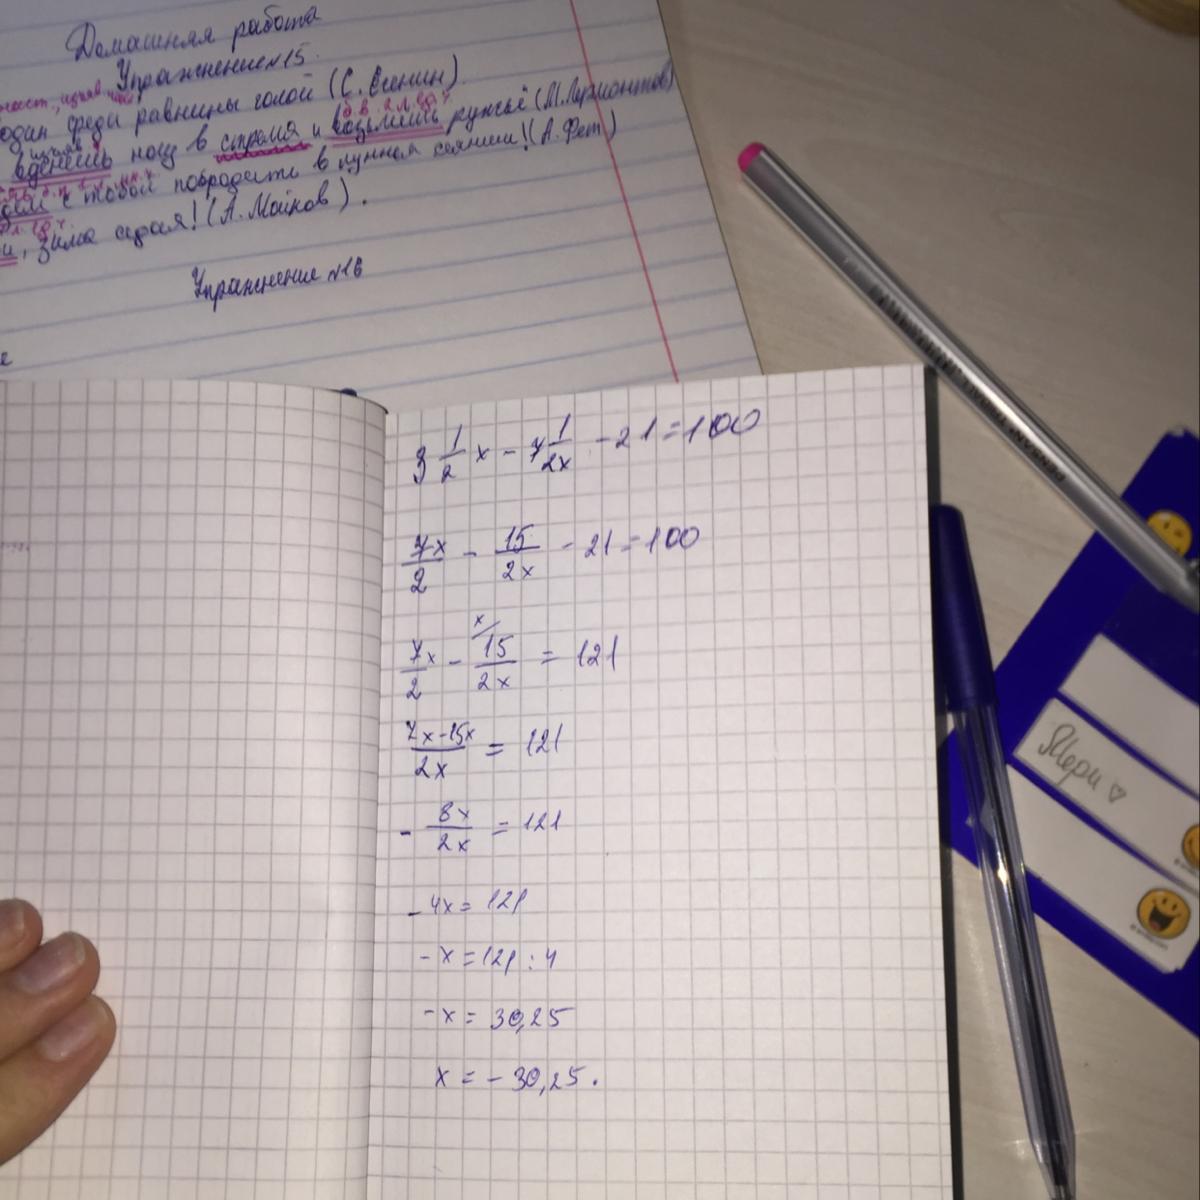 Домашняя работа
Упражнение №15.
один среди равнины голой (С. Есенин).
б.в. 2 л. ед. ч.
вденешь ногу в стремя и возьмёшь ружьё (М. Лермонтов)
с тобой побродить в лунном сиянии! (А. Фет)
, зима седая! (А. Майков).
Упражнение №16
3 1/2 x - 7 1/2x - 21 = 100
7x/2 - 15/2x - 21 = 100
7/2 x - 15/2x = 121
x
7x-15x/2x = 121
- 8x/2x = 121
-4x = 121
-x = 121 : 4
-x = 30,25
x = -30,25.
Мери ♡